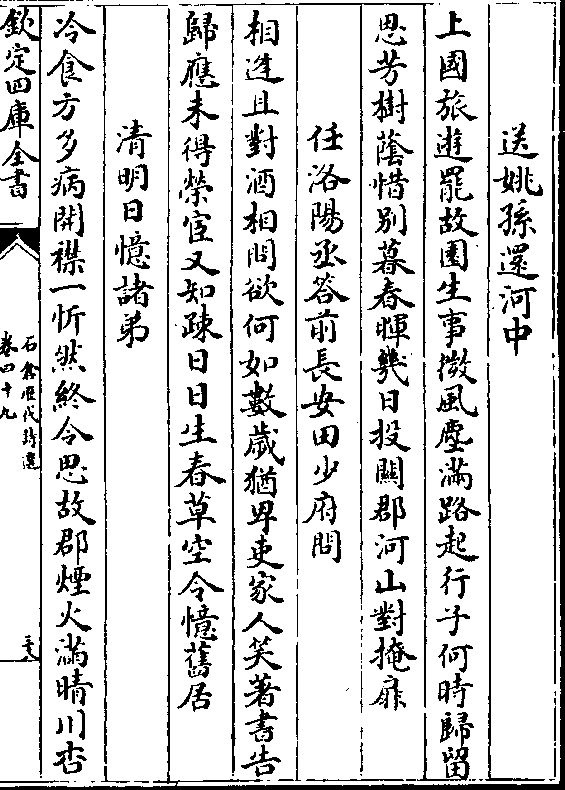 送姚孫還河中
上國旅遊罷故園生事微風塵滿路起行子何時歸留
思芳樹蔭惜别暮春暉幾日投關郡河山對掩扉
任洛陽丞答前長安田少府問
相逢且對酒相問欲何如數歲猶卑吏家人笑著書告
歸應未得榮宦又知疎日日生春草空令憶舊居
清明日憶諸弟
冷食方多病開襟一忻然終令思故郡煙火滿晴川杏
欽定四庫全書
石倉歷代詩選
卷四十九